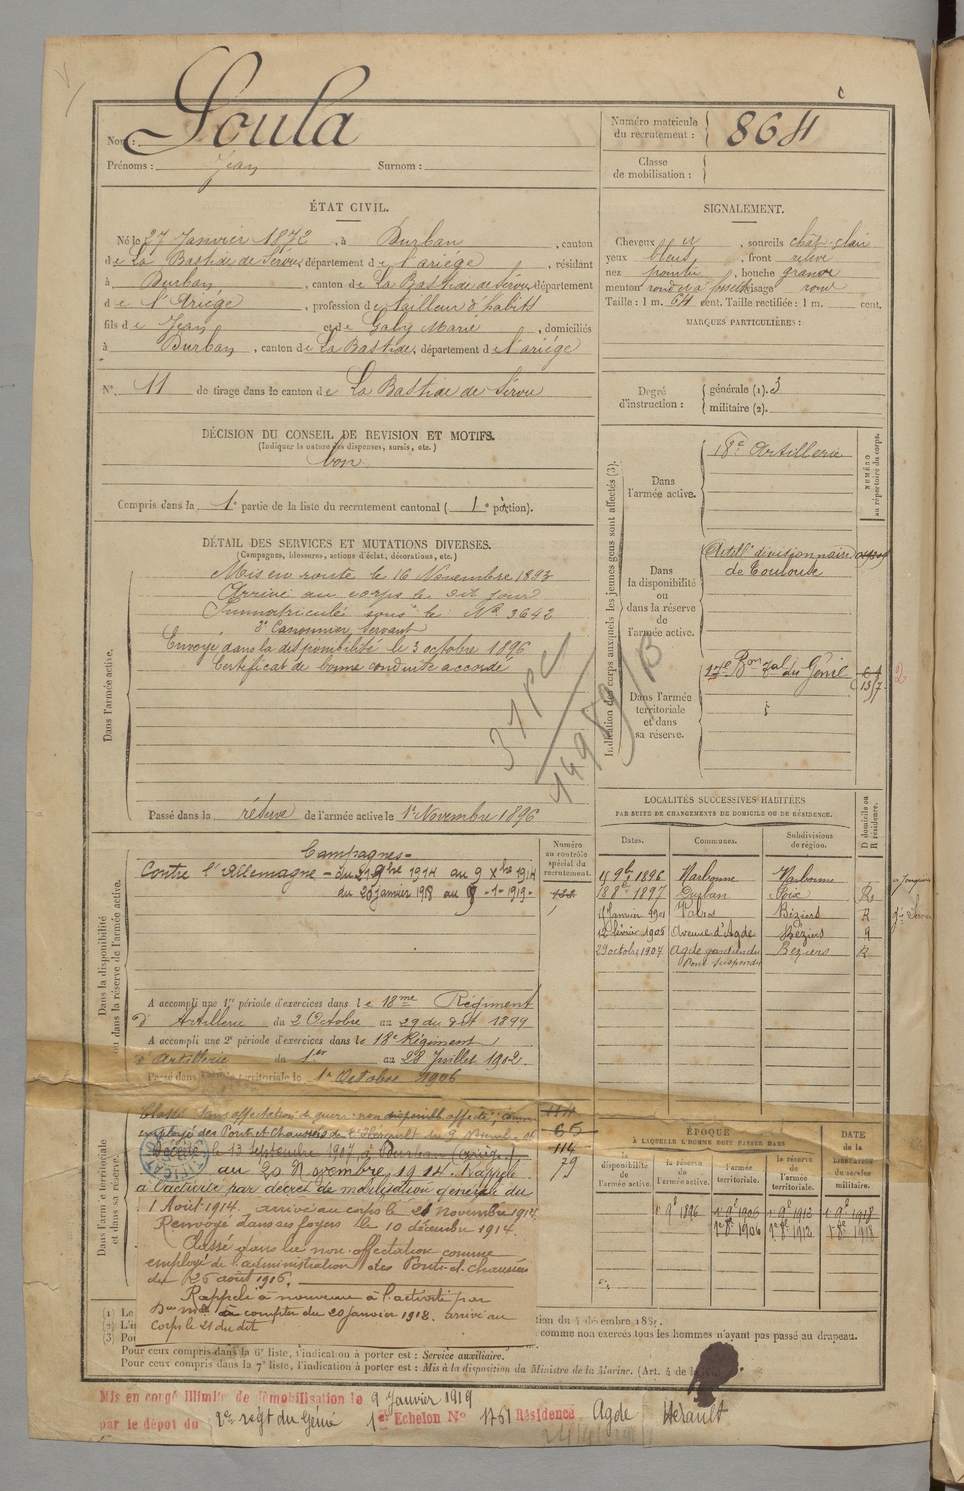 Nom : Soula
Prénoms : Jean Surnom :
ÉTAT CIVIL.
Né le 27 Janvier 1872, à Durban, canton
de La Bastide de Sérou, département de l'ariège, résidant
à Durban, canton de La Bastide de Sérou, département
de l'Ariège, profession de tailleur d'habits
fils de Jean et de Galy Marie, domiciliés
à Durban, canton de La Bastide, département de l'ariège
N° 11 de tirage dans le canton de La Bastide de Sérou
DÉCISION DU CONSEIL DE REVISION ET MOTIFS.
(Indiquer la nature des dispenses, sursis, etc.)
bon
Compris dans la 1e partie de la liste du recrutement cantonal (1e portion).
DÉTAIL DES SERVICES ET MUTATIONS DIVERSES.
(Campagnes, blessures, actions d'éclat, décorations, etc.)
Dans l'armée active.
Mis en route le 16 Novembre 1893
Arrivé au corps le dit jour
Immatriculé sous le N° 3642
2e Canonnier Servant
Envoyé dans la disponibilité le 3 octobre 1896
Certificat de bonne conduite accordé
Passé dans la réserve de l'armée active le 1er Novembre 1896
Dans la disponibilité
ou dans la réserve de l'armée active.
Numéro
au contrôle
spécial du
recrutement.
Campagnes-
Contre l'Allemagne - du 21 9bre 1914 au 9 Xbre 1914
du 20 janvier 1918 au 9 -1- 1919-
A accompli une 1re période d'exercices dans le 18me Régiment
d'Artillerie du 2 Octobre au 29 du dit 1899
A accompli une 2e période d'exercices dans le 18e Régiment
d'Artillerie du 1er au 28 Juillet 1902
Passé dans l'armée territoriale le 1er Octobre 1906
Dans l'armée territoriale
et dans sa réserve.
Classé Sans affectation
employé des Ponts et Chaussées de l'Hérault du 9 Novembre
Décédé le 13 septembre 1907 à Durban (Ariège)
au 20 Novembre 1914. Rappelé
à l'activité par décret de mobilisation générale du
1 Août 1914. arrivé au corps le 21 novembre 1914.
Renvoyé dans ses foyers le 10 décembre 1914.
Classé dans la non-affectation comme
employé de l'administration des Ponts-et-chaussées
du 25 août 1916.
Rappelé à nouveau à l'activité par
à compter du 20 janvier 1918. arrivé au
corps le 21 du dit
114
65
114
29
Numéro matricule
du recrutement : 864
Classe
de mobilisation :
SIGNALEMENT.
Cheveux, sourcils chât-clair
yeux bleus, front relevé
nez pointu, bouche grande
menton rond à fossette visage rond
Taille : 1 m. 64 cent. Taille rectifiée : 1 m. cent.
MARQUES PARTICULIÈRES :
Degré
d'instruction :
générale (1). 3
militaire (2).
Indication des corps auxquels les jeunes gens sont affectés (3).
NUMÉRO
au répertoire du corps.
Dans
l'armée active.
18e Artillerie
Dans
la disponibilité
ou
dans la réserve
de
l'armée active.
Artillie divisionnaire
de Toulouse
Dans l'armée
territoriale
et dans
sa réserve.
17e Bon Tal du Génie
C 13/7
2
37 PC
14989/B
LOCALITÉS SUCCESSIVES HABITÉES
PAR SUITE DE CHANGEMENTS DE DOMICILE OU DE RÉSIDENCE.
D domicile ou
R résidence.
Dates. Communes. Subdivisions
de région.
9bre 1896 Narbonne Narbonne
18 8bre 1897 Durban Foix R
janvier 1901 Valros Béziers R
12 février 1906 Avenue d'Agde Béziers R
29 octobre 1907 Agde gardien du Béziers R
Pont suspendu
ÉPOQUE
À LAQUELLE L'HOMME DOIT PASSER DANS
DATE
de la
LIBÉRATION
du service
militaire.
la
disponibilité
de l'armée active.
la réserve
de
l'armée active.
l'armée
territoriale.
la réserve
de
l'armée
territoriale.
1er 9e 1896 1er 9e 1906 1er 9e 1912 1er 9e 1918
1er 8e 1906 1er 8e 1912 1er 8e 1918
(1) Le
(2) L'in
(3) Pou
tion du 4 décembre 1889.
comme non exercés tous les hommes n'ayant pas passé au drapeau.
Pour ceux compris dans la 6e liste, l'indication à porter est : Service auxiliaire.
Pour ceux compris dans la 7e liste, l'indication à porter est : Mis à la disposition du Ministre de la Marine. (Art. 4 de la
Mis en congé illimité de démobilisation le 9 Janvier 1919
par le dépôt du 2e regt du Génie 1er Echelon N° 1761 Résidence Agde Hérault